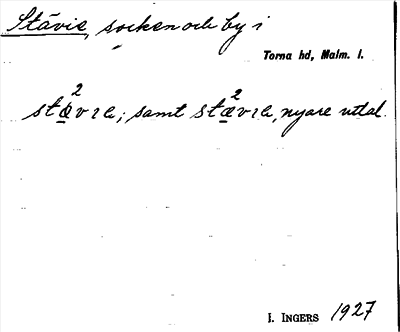 Stävie, socken och by i
Torna hd, Malm. l.
stävɪe; samt stævɪe, nyare uttal.
I. INGERS 1927